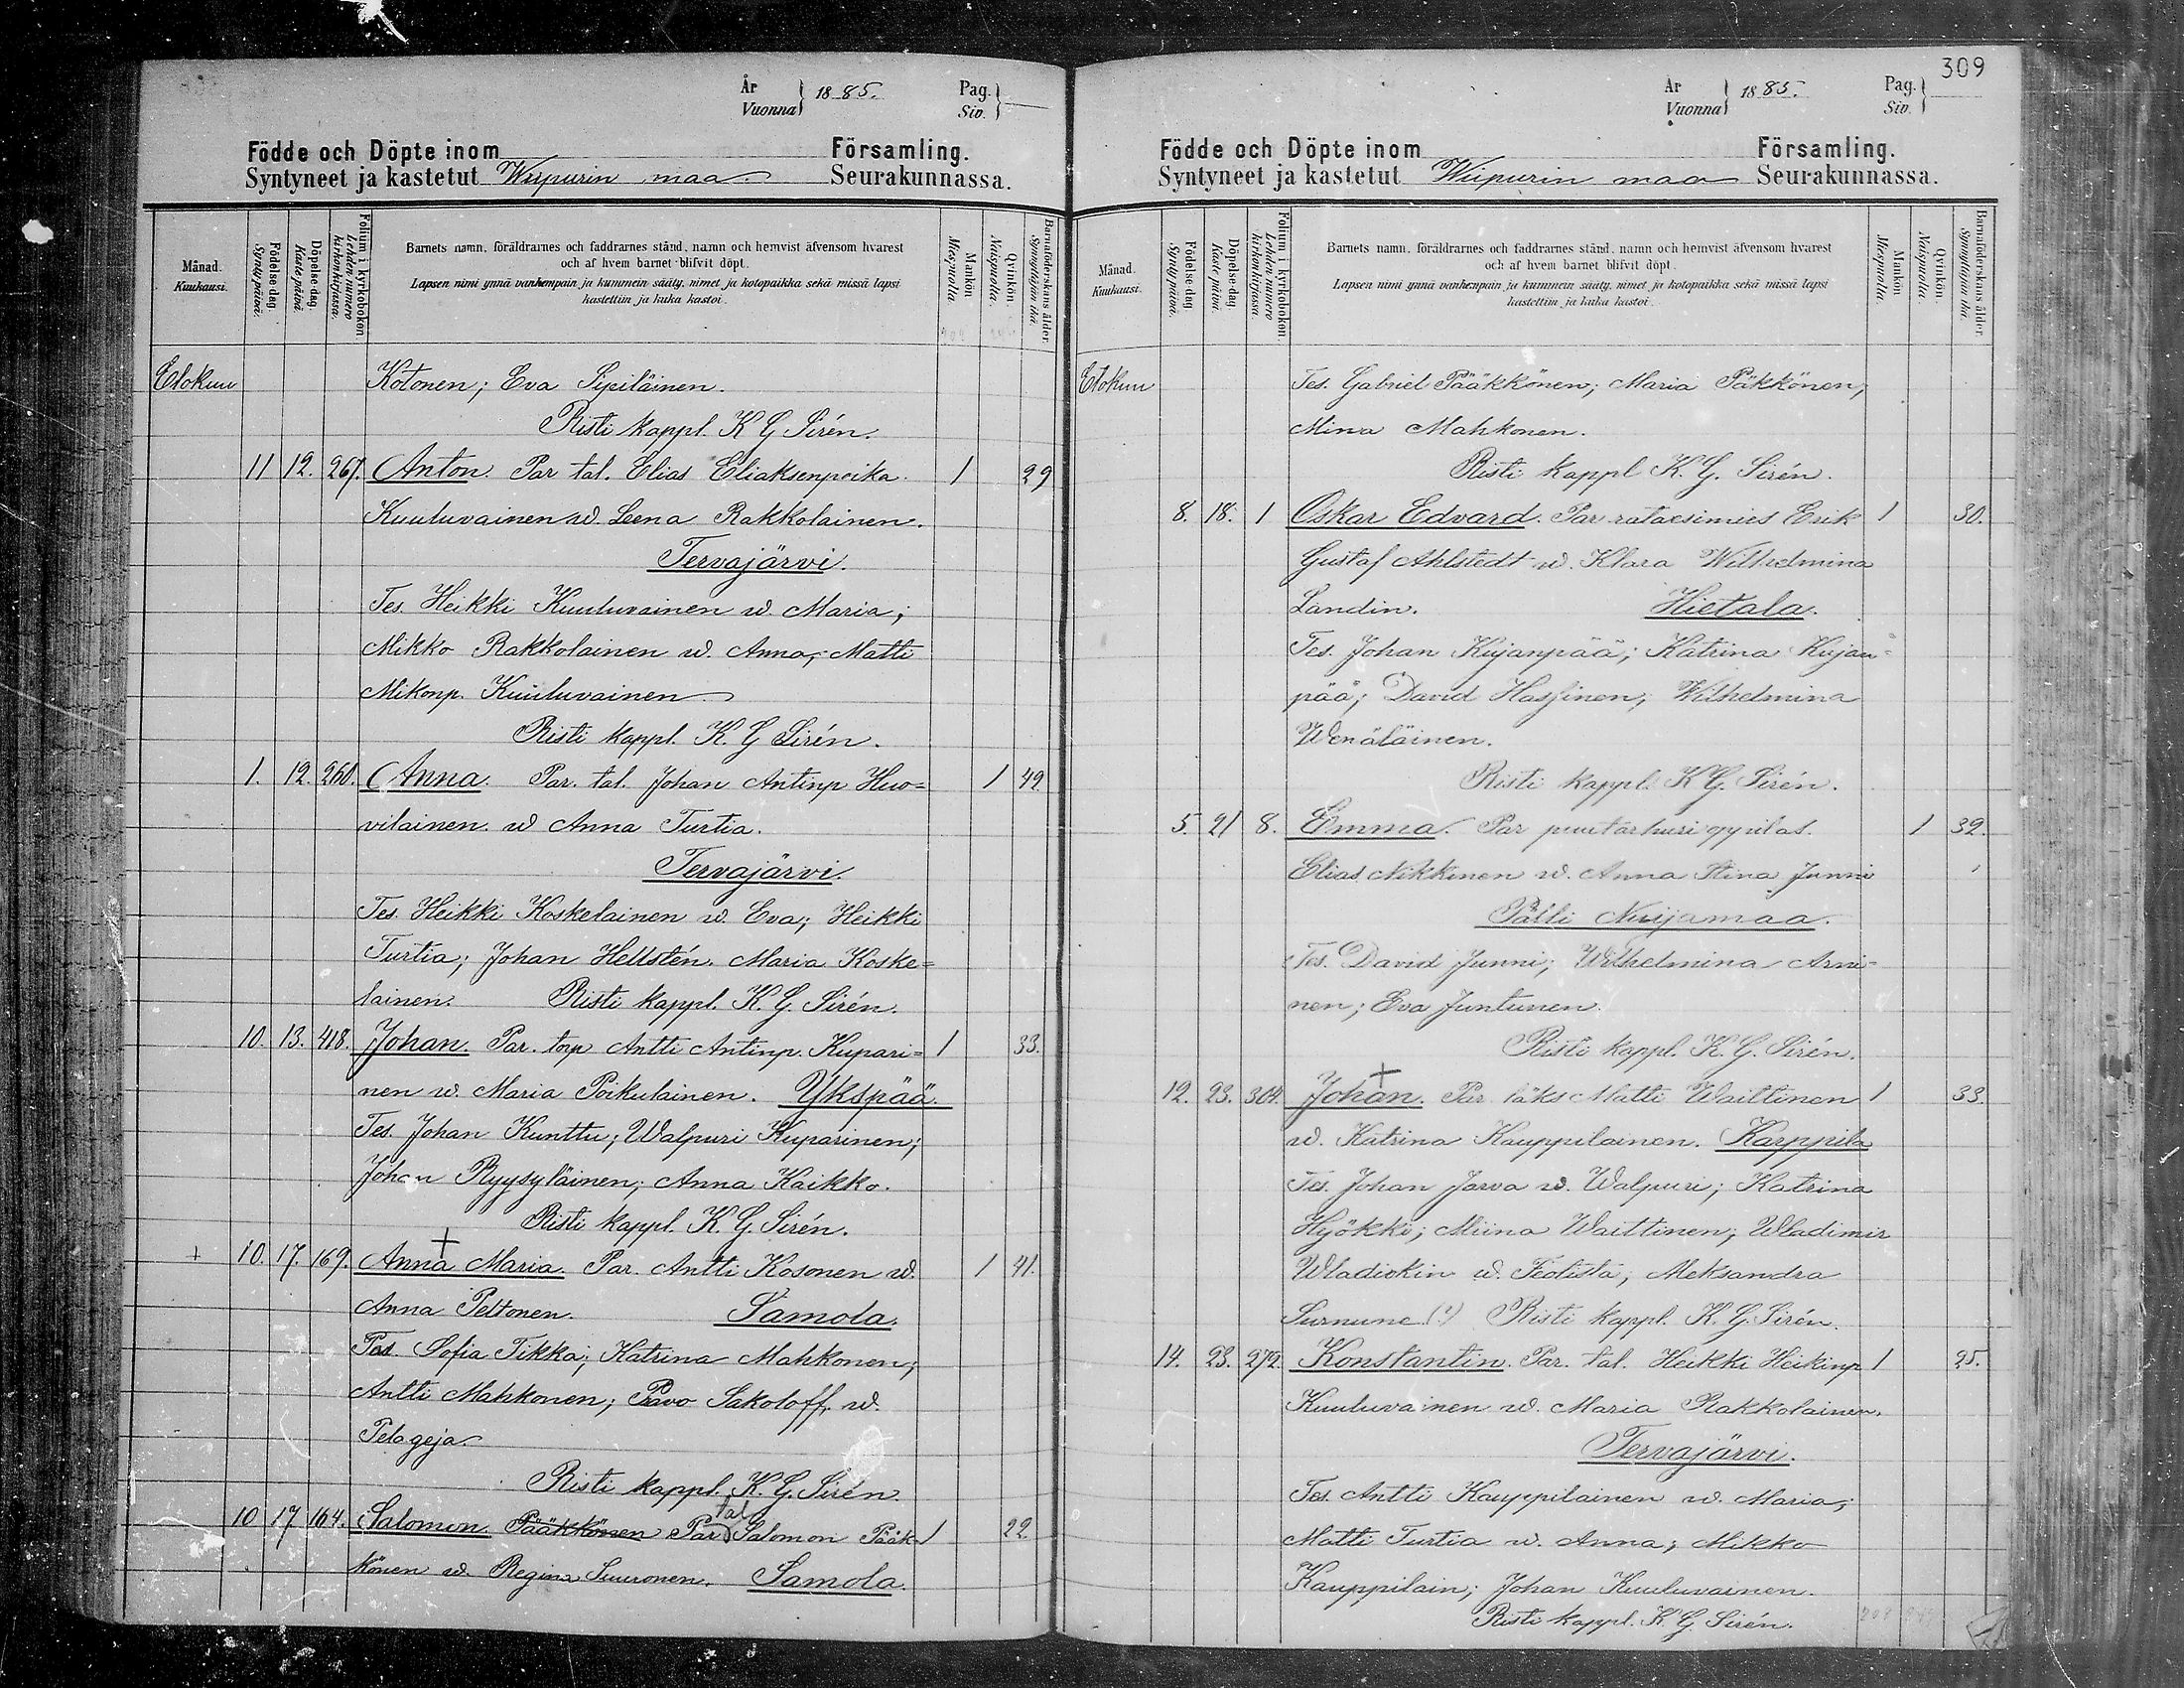 År
Vuonna } 1885.
Pag.
Siv. }
Födde och Döpte inom Församling.
Syntyneet ja kastetut Wiipurin maa Seurakunnassa.
Månad.
Kuukausi.
Födelse-dag.
Syntypäivä.
Döpelse-dag.
Kastepäivä.
Folium i kyrkobokon
Lehden numero
kirkonkirjassa.
Barnets namn, föräldrarnes och faddrarnes stånd, namn och hemvist äfvensom hvarest
och af hvem barnet blifvit döpt.
Lapsen nimi ynnä vanhempain ja kummein sääty, nimet ja kotopaikka sekä missä lapsi
kastettiin ja kuka kastoi.
Mankön.
Miespuolia.
Qvinkön.
Naispuolia.
Barnaföderskans ålder.
Synnyttäjän ikä.
Elokuu Kotonen; Eva Sipiläinen.
Risti kappl. K G Sirén.
11 12. 267. Anton. Par tal. Elias Eliaksenpoika 1 29
Kuuluvainen w. Leena Rakkolainen.
Tervajärvi.
Tes. Heikki Kuuluvainen w. Maria;
Mikko Rakkolainen w. Anna; Matti
Mikonp. Kuuluvainen
Risti kappl. K. G Sirén.
1. 12. 260. Anna. Par. tal. Johan Antinp Huo= 1 42
vilainen w Anna Turtia.
Tervajärvi.
Tes. Heikki Koskelainen w. Eva; Heikki
Turtia; Johan Hellstén. Maria Koske=
lainen. Risti kappl. K. G. Sirén.
10. 13. 418. Johan. Par. torp Antti Antinp. Kupari= 1 33.
nen w. Maria Poikulainen. Ykspää.
Tes. Johan Kunttu; Walpuri Kuparinen;
Johan Ryysyläinen; Anna Kaikko.
Risti kappl. K. G. Sirén.
+ 10. 17. 169. Anna Maria. Par. Antti Kosonen w. 1 41.
Anna Peltonen. Samola.
Tes. Sofia Tikka; Katrina Mahkonen;
Antti Mahkonen; Pavo Sakoloff w.
Pelageja.
Risti kappl. K. G. Sirén.
10 17 164. Salomon. Pääkkönen Par tal Salomon Pääk= 1 22.
könen w. Regina Suuronen. Samola.
309
År
Vuonna } 1885.
Pag.
Siv. }
Födde och Döpte inom Församling.
Syntyneet ja kastetut Wiipurin maa Seurakunnassa.
Månad.
Kuukausi.
Födelse-dag
Syntypäivä.
Döpelse-dag.
Kaste päivä.
Folium i kyrkobokon
Lehden numero
kirkonkirjassa.
Barnets namn, föräldrarnes och faddrarnes stånd, namn och hemvist äfvensom hvarest
och af hvem barnet blifvit döpt.
Lapsen nimi ynnä vanhenpain ja kummein sääty, nimet ja kotopaikka sekä missä lapsi
kastettiin ja kuka kastoi.
Mankön
Miespuolia.
Qvinkön.
Naispuolia.
Barnaföderskans ålder.
Synnyttäjän ikä.
Elokuu Tes. Gabriel Pääkkönen; Maria Päkkönen,
Mina Mahkonen.
Risti kappl K. G. Sirén.
8. 18. 1 Oskar Edvard. Par rataesimies Erik 1 30.
Gustaf Ahlstedt w. Klara Wilhelmina
Landin. Hietala.
Tes. Johan Kujanpää; Katrina Kujan=
pää; David Hassinen; Wilhelmina
Wenäläinen.
Risti kappl. K G. Sirén.
5. 21 8. Emma. Par puutarhuri 1 32.
Elias Nikkinen w. Anna Stina Junni
Pälli Nuijamaa.
Tes. David Junni; Wilhelmina Arni=
nen; Eva Juntunen.
Risti kappl. K. G. Sirén.
12. 23. 304. Johan. + Par läks Matti Waittinen 1 33.
w. Katrina Kauppilainen. Karppila
Tes. Johan Jarva w. Walpuri; Katrina
Hyökki; Miina Waittinen; Wladimir
Wladickin w. Feolista; Aleksandra
Surnune (?) Risti kappl. K. G. Sirén.
14. 23. 272. Konstantin. Par. tal. Heikki Heikinp 1 25.
Kuuluvainen w. Maria Rakkolainen.
Tervajärvi.
Tes. Antti Kauppilainen w. Maria;
Matti Turtia w. Anna; Mikko
Kauppilain; Johan Kuuluvainen.
Risti kappl. K G Sirén.